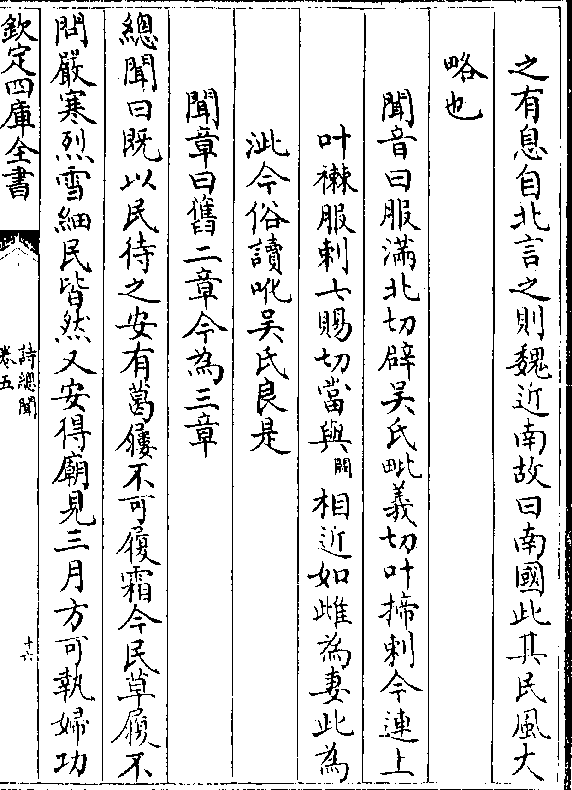 之有息自北言之則魏近南故曰南國此其民風大
略也
聞音曰服滿北切辟吳氏毗義切叶揥刺今連上
叶襋服刺七賜切當與闕相近如雌為妻此為
泚今俗讀呲吳氏良是
聞章曰舊二章今為三章
總聞曰既以民待之安有葛屨不可履霜今民草履不
問嚴寒烈雪細民皆然又安得廟見三月方可執婦功
欽定四庫全書
詩總聞
卷五
十六